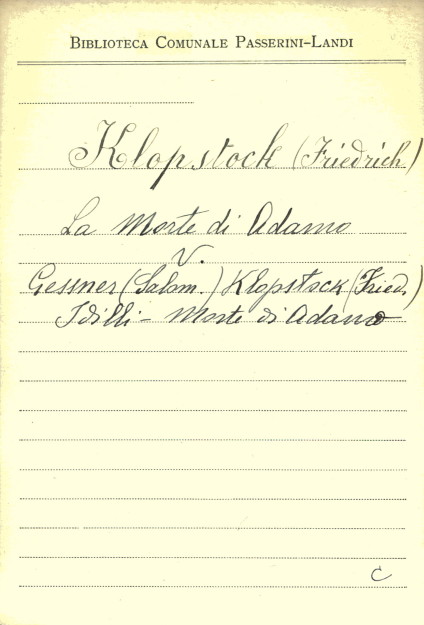 BIBLIOTECA COMUNALE PASSERINI-LANDI
Klopstock (Friedrich)
La Morte di Adamo
V.
Gessner (Salom.) Klopstock (Fried.)
Idilli - Morte di Adamo
C